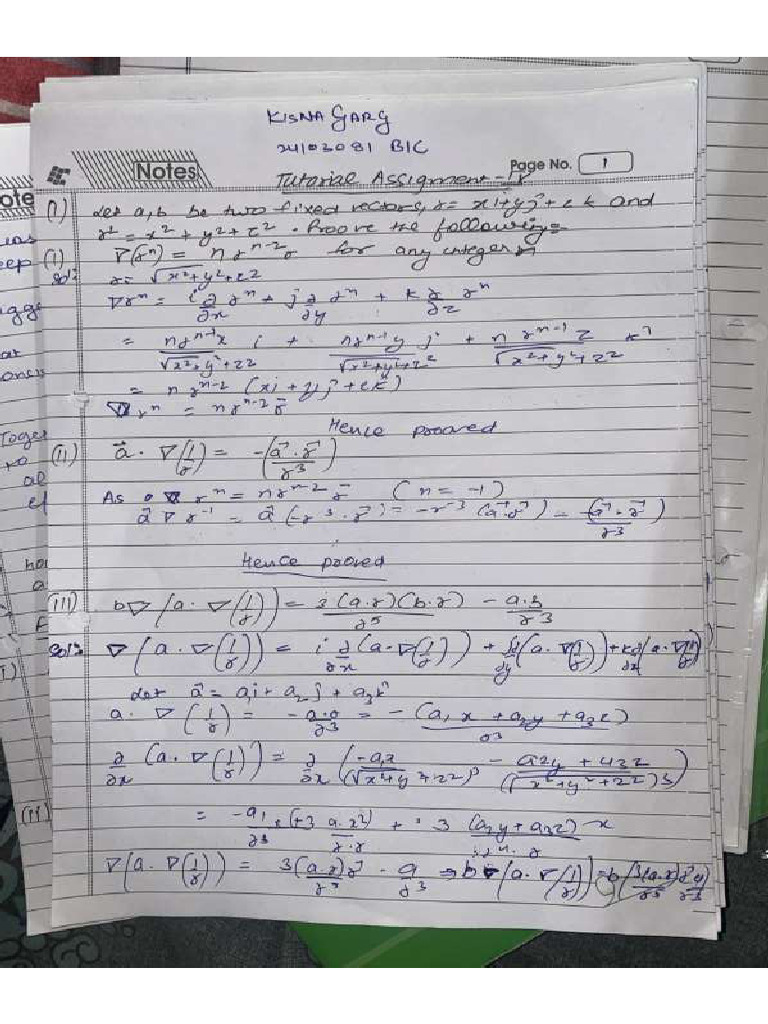 KISNA GARG
24103081 BIC
Notes
Page No. 1
Tutorial Assigment -
(1) Let a, b be two fixed vectors, r = xi + yj + zk and
r² = x² + y² + z² . Proove the following:-
(i) ∇(rⁿ) = n rⁿ⁻² r for any integer n
Solⁿ: r = √(x² + y² + z²)
∇rⁿ = i ∂/∂x rⁿ + j ∂/∂y rⁿ + k ∂/∂z rⁿ
= n rⁿ⁻¹ x / √(x² + y² + z²) i + n rⁿ⁻¹ y / √(x² + y² + z²) j + n rⁿ⁻¹ z / √(x² + y² + z²) k
= n rⁿ⁻² (xi + yj + zk)
∇ rⁿ = n rⁿ⁻² r⃗
Hence prooved
(ii) a⃗ · ∇(1/r) = -(a⃗ · r⃗ / r³)
As ∇ rⁿ = n rⁿ⁻² r⃗ (n = -1)
a⃗ ∇ r⁻¹ = a⃗ (-r⁻³ · r⃗) = -r⁻³ (a⃗ · r⃗) = -(a⃗ · r⃗) / r³
Hence prooved
(iii) b ∇ (a · ∇(1/r)) = 3 (a.r)(b.r) / r⁵ - a.b / r³
Solⁿ: ∇ (a · ∇(1/r)) = i ∂/∂x (a · ∇(1/r)) + j ∂/∂y (a · ∇(1/r)) + k ∂/∂z (a · ∇(1/r))
Let a⃗ = a₁i + a₂j + a₃k
a · ∇(1/r) = - a.r / r³ = - (a₁x + a₂y + a₃z) / r³
∂/∂x (a · ∇(1/r)) = ∂/∂x (-a₁x / (√(x² + y² + z²))³ - a₂y + a₃z / (√(x² + y² + z²))³)
= -a₁ / r³ + 3 (a₂y + a₃z) x
∇(a · ∇(1/r)) = 3(a.r)r⃗ / r⁵ - a / r³ ⇒ b ∇(a · ∇(1/r)) = b (3(a.r)r⃗ / r⁵ - a / r³)